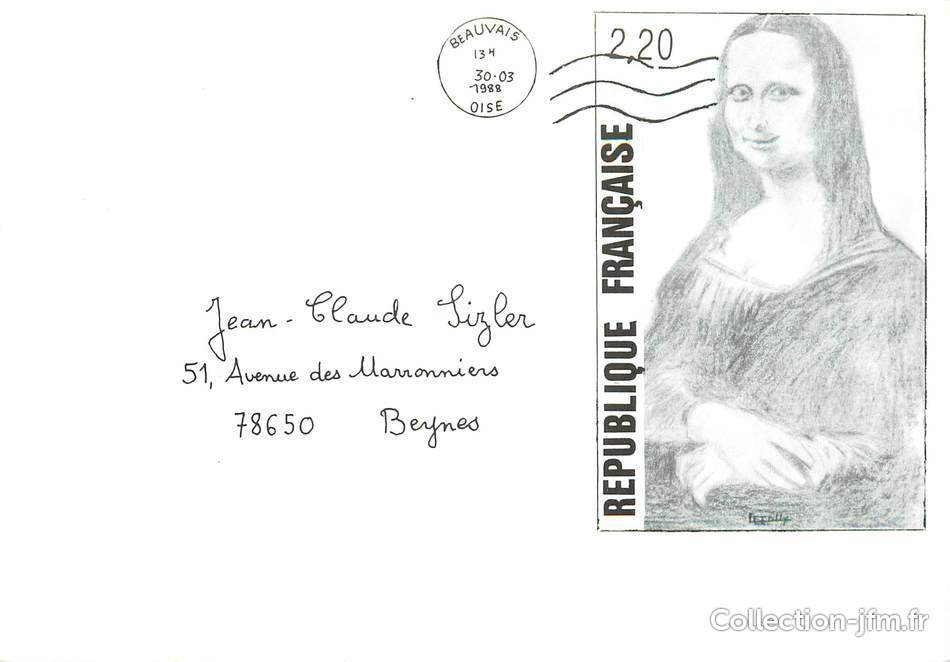 BEAUVAIS
13 H
30-03
1988
OISE
2,20
REPUBLIQUE FRANÇAISE
Jean-Claude Sizler
51, Avenue des Marronniers
78650 Beynes
Collection-jfm.fr